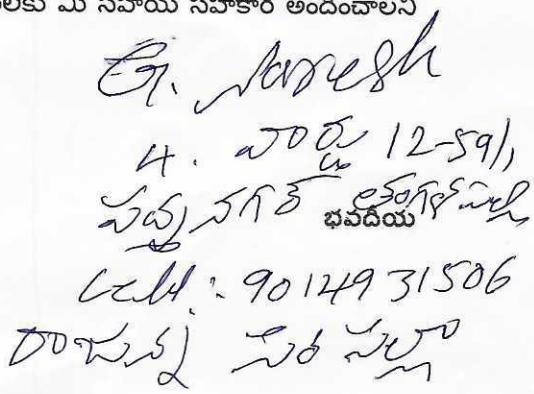 లకు మీ సహాయ సహకార అందించాలని
G. Naresh
4. వార్డు 12-59/1,
పద్మనగర్ తంగళ్ళపల్లి
భవదీయ
Cell: 9014931506
రాజన్న సిరిసిల్లా